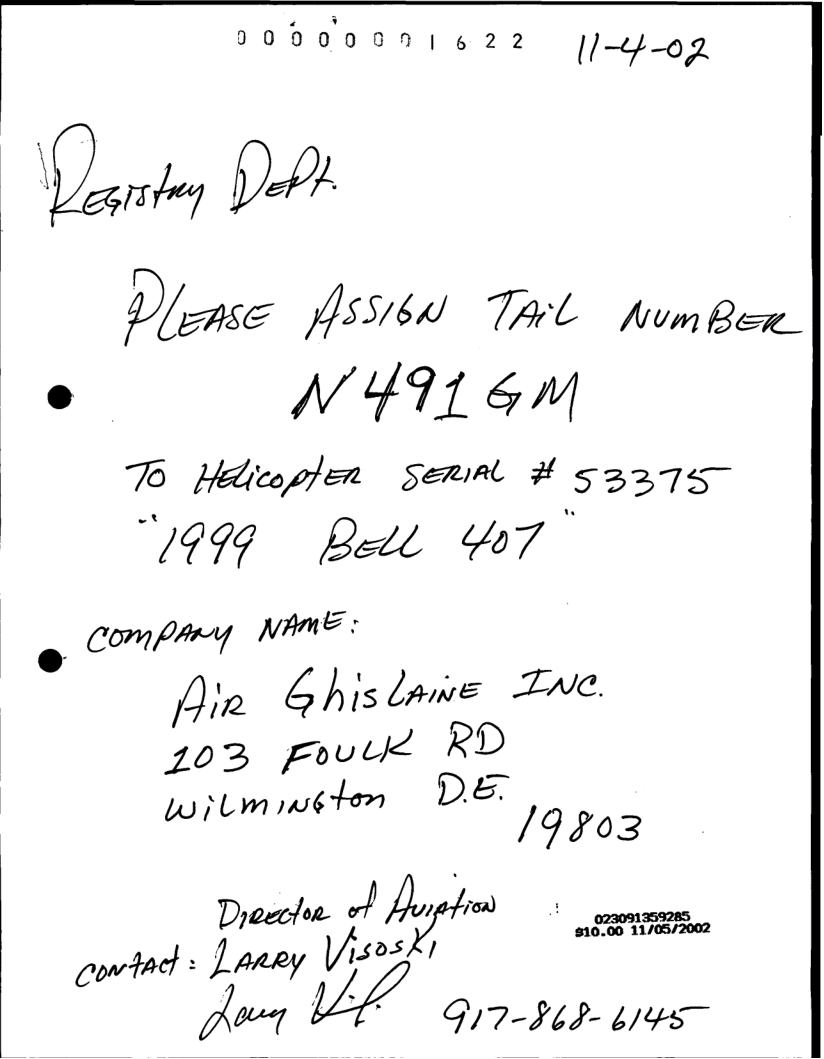 00000001622 11-4-02
Registry Dept.
PLEASE ASSIGN TAIL NUMBER
N491GM
TO HELICOPTER SERIAL # 53375
"1999 BELL 407"
COMPANY NAME:
AIR GHISLAINE INC.
103 FOULK RD
WILMINGTON D.E.
19803
DIRECTOR of AVIATION
023091359285
$10.00 11/05/2002
CONTACT: LARRY VISOSKI
917-868-6145